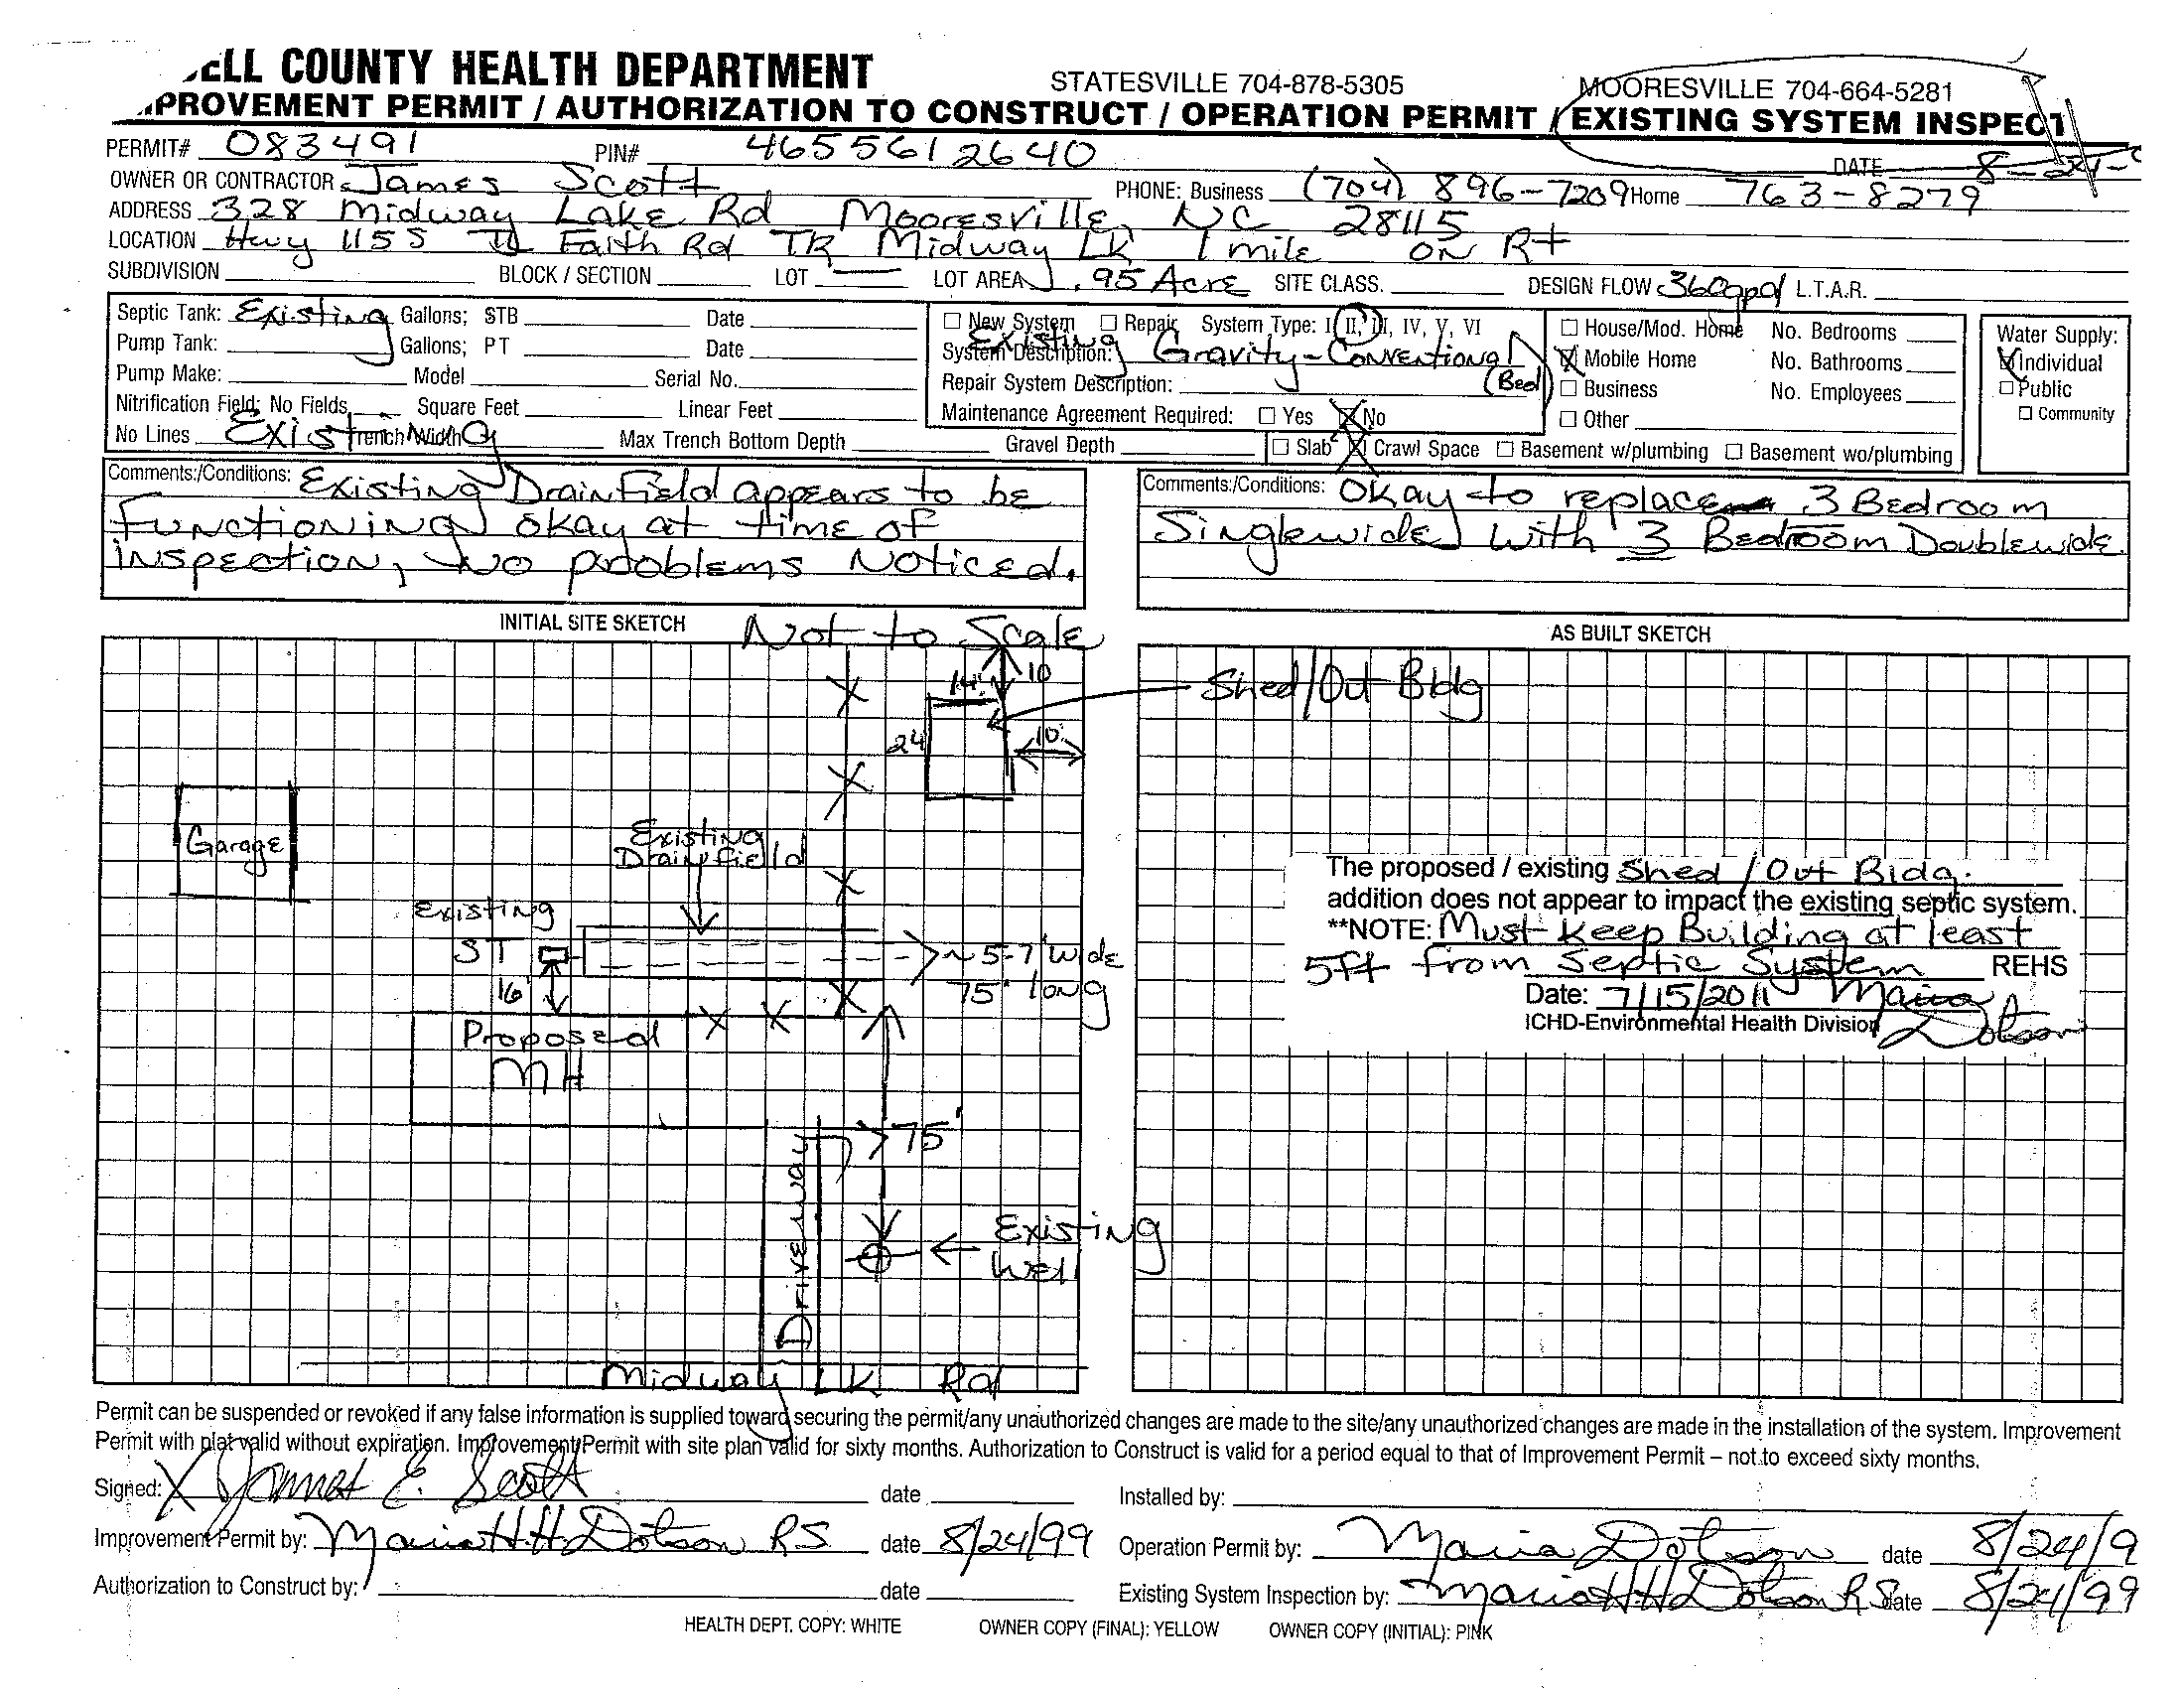 ELL COUNTY HEALTH DEPARTMENT STATESVILLE 704-878-5305 MOORESVILLE 704-664-5281
PROVEMENT PERMIT / AUTHORIZATION TO CONSTRUCT / OPERATION PERMIT / EXISTING SYSTEM INSPECT
PERMIT# 083491 PIN# 4655612640 DATE 8-24-
OWNER OR CONTRACTOR James Scott PHONE: Business (704) 896-7209 Home 763-8279
ADDRESS 328 Midway Lake Rd Mooresville, NC 28115
LOCATION Hwy 115 S TL Faith Rd TR Midway LK 1 mile ON Rt
SUBDIVISION BLOCK / SECTION LOT LOT AREA .95 Acre SITE CLASS. DESIGN FLOW 360gpd L.T.A.R.
Septic Tank: Existing Gallons; STB Date
Pump Tank: Gallons; PT Date
Pump Make: Model Serial No.
Nitrification Field: No Fields Square Feet Linear Feet
No Lines Existing Trench Width Max Trench Bottom Depth Gravel Depth
☐ New System ☐ Repair System Type: I, II, III, IV, V, VI
Existing
System Description: Gravity-Conventional
Repair System Description: (Bed)
Maintenance Agreement Required: ☐ Yes ☒ No
☐ House/Mod. Home No. Bedrooms
☒ Mobile Home No. Bathrooms
☐ Business No. Employees
☐ Other
☐ Slab ☒ Crawl Space ☐ Basement w/plumbing ☐ Basement wo/plumbing
Water Supply:
☒ Individual
☐ Public
☐ Community
Comments:/Conditions: Existing Drainfield appears to be
Functioning okay at time of
inspection, No problems Noticed.
Comments:/Conditions: Okay to replace 3 Bedroom
Singlewide with 3 Bedroom Doublewide
INITIAL SITE SKETCH Not to Scale
AS BUILT SKETCH
14' 10
Shed/Out Bldg
24 10'
Garage
Existing
Drainfield
Existing
ST
~5-7' Wide
75' long
16'
Proposed
MH
75'
Driveway
Existing
Well
Midway LK Rd
The proposed / existing Shed / Out Bldg.
addition does not appear to impact the existing septic system.
**NOTE: Must Keep Building at least
5ft from Septic System REHS
Date: 7/15/2011 Maria Dotson
ICHD-Environmental Health Division
Permit can be suspended or revoked if any false information is supplied toward securing the permit/any unauthorized changes are made to the site/any unauthorized changes are made in the installation of the system. Improvement
Permit with plat valid without expiration. Improvement Permit with site plan valid for sixty months. Authorization to Construct is valid for a period equal to that of Improvement Permit – not to exceed sixty months.
Signed: X James E. Scott date Installed by:
Improvement Permit by: Maria H.H. Dotson RS date 8/24/99 Operation Permit by: Maria Dotson date 8/24/9
Authorization to Construct by: date Existing System Inspection by: Maria H.H. Dotson RS date 8/24/99
HEALTH DEPT. COPY: WHITE OWNER COPY (FINAL): YELLOW OWNER COPY (INITIAL): PINK